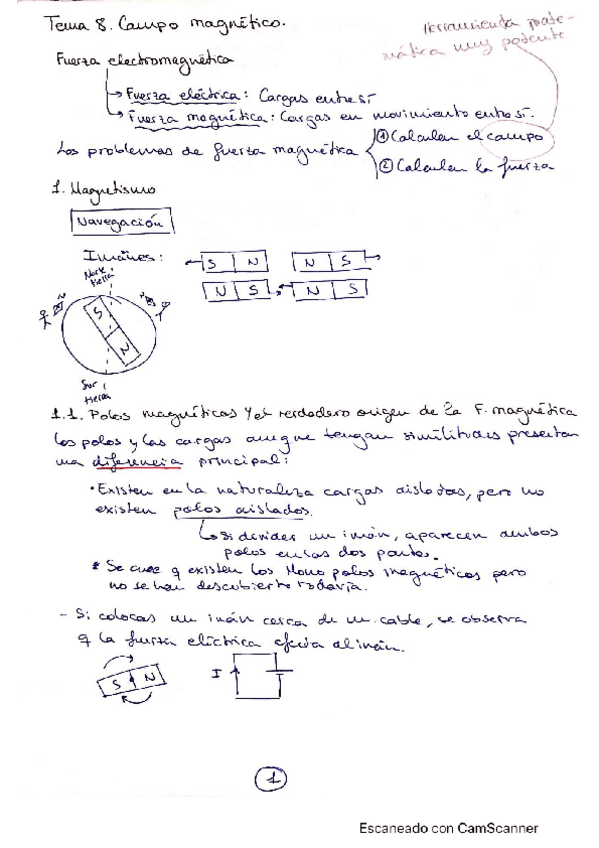 Tema 8. Campo magnético.
Herramienta mate-
mática muy potente
Fuerza electromagnética
Fuerza eléctrica: Cargas entre sí
Fuerza magnética: Cargas en movimiento entre sí.
Los problemas de fuerza magnética
① Calculan el campo
② Calculan la fuerza
1. Magnetismo
Navegación
Imanes:
S N N S
N S N S
Norte
tierra
N N
S
N
Sur
tierra
1.1. Polos magnéticos y el verdadero origen de la F. magnética
Los polos y las cargas aunque tengan similitudes presentan
una diferencia principal:
• Existen en la naturaleza cargas aisladas, pero no
existen polos aislados.
Si divides un imán, aparecen ambos
polos en las dos partes.
* Se cree q existen los Mono polos magnéticos pero
no se han descubierto todavía.
- Si colocas un imán cerca de un cable, se observa
q la fuerza eléctrica afecta al imán.
S N
I
1
Escaneado con CamScanner